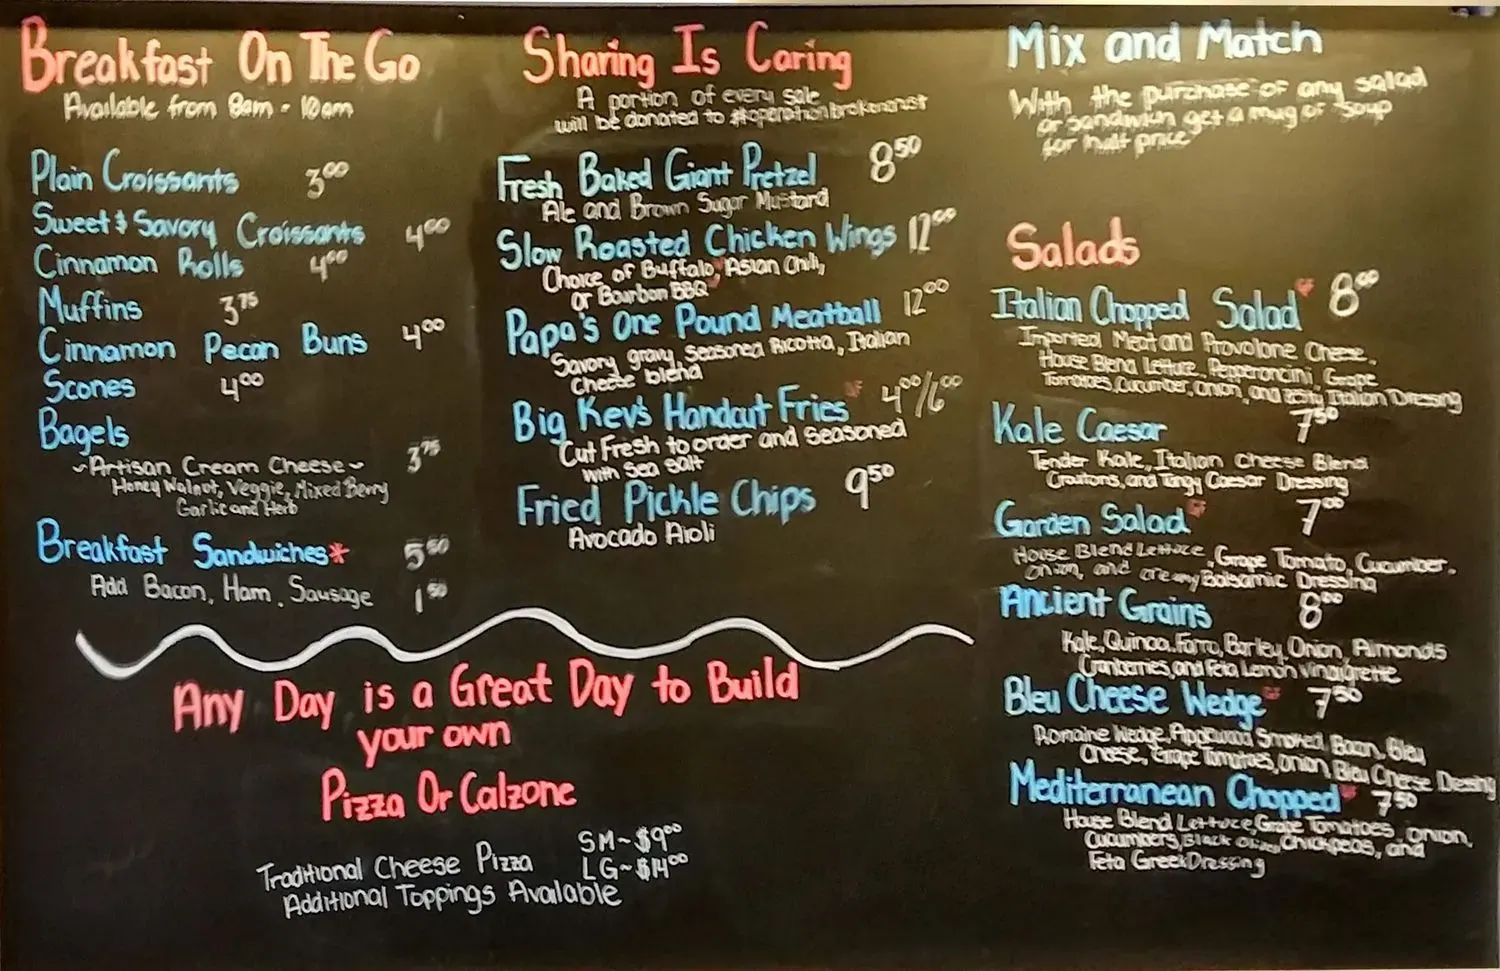 Breakfast On The Go
Available from 8am - 10am
Plain Croissants 3.00
Sweet & Savory Croissants 4.00
Cinnamon Rolls 4.00
Muffins 3.75
Cinnamon Pecan Buns 4.00
Scones 4.00
Bagels
~Artisan Cream Cheese~ 3.75
Honey Walnut, Veggie, Mixed Berry
Garlic and Herb
Breakfast Sandwiches* 5.50
Add Bacon, Ham, Sausage 1.50
Sharing Is Caring
A portion of every sale
will be donated to #operationbrokenarist
Fresh Baked Giant Pretzel 8.50
Ale and Brown Sugar Mustard
Slow Roasted Chicken Wings 12.00
Choice of Buffalo, Asian Chili,
or Bourbon BBQ
Papa's One Pound Meatball 12.00
Savory gravy, Seasoned Ricotta, Italian
cheese blend
Big Kev's Handcut Fries GF 4.00/6.00
Cut Fresh to order and Seasoned
with Sea Salt
Fried Pickle Chips 9.50
Avocado Aioli
Any Day is a Great Day to Build
your own
Pizza Or Calzone
Traditional Cheese Pizza SM~$9.00
LG~$14.00
Additional Toppings Available
Mix and Match
With the purchase of any salad
or sandwich get a mug of soup
for half price
Salads
Italian Chopped Salad GF 8.00
Imported Meat and Provolone Cheese,
House Blend Lettuce, Pepperoncini, Grape
Tomatoes, Cucumber, Onion, and Zesty Italian Dressing
Kale Caesar 7.50
Tender Kale, Italian Cheese Blend
Croutons, and Tangy Caesar Dressing
Garden Salad GF 7.00
House Blend Lettuce, Grape Tomato, Cucumber,
Onion, and creamy Balsamic Dressing
Ancient Grains 8.00
Kale, Quinoa, Farro, Barley, Onion, Almonds
Cranberries, and Feta Lemon Vinaigrette
Bleu Cheese Wedge GF 7.50
Romaine Wedge, Applewood Smoked Bacon, Bleu
Cheese, Grape Tomatoes, Onion, Bleu Cheese Dressing
Mediterranean Chopped GF 7.50
House Blend Lettuce, Grape Tomatoes, Onion,
Cucumbers, Black Olives, Chickpeas, and
Feta Greek Dressing